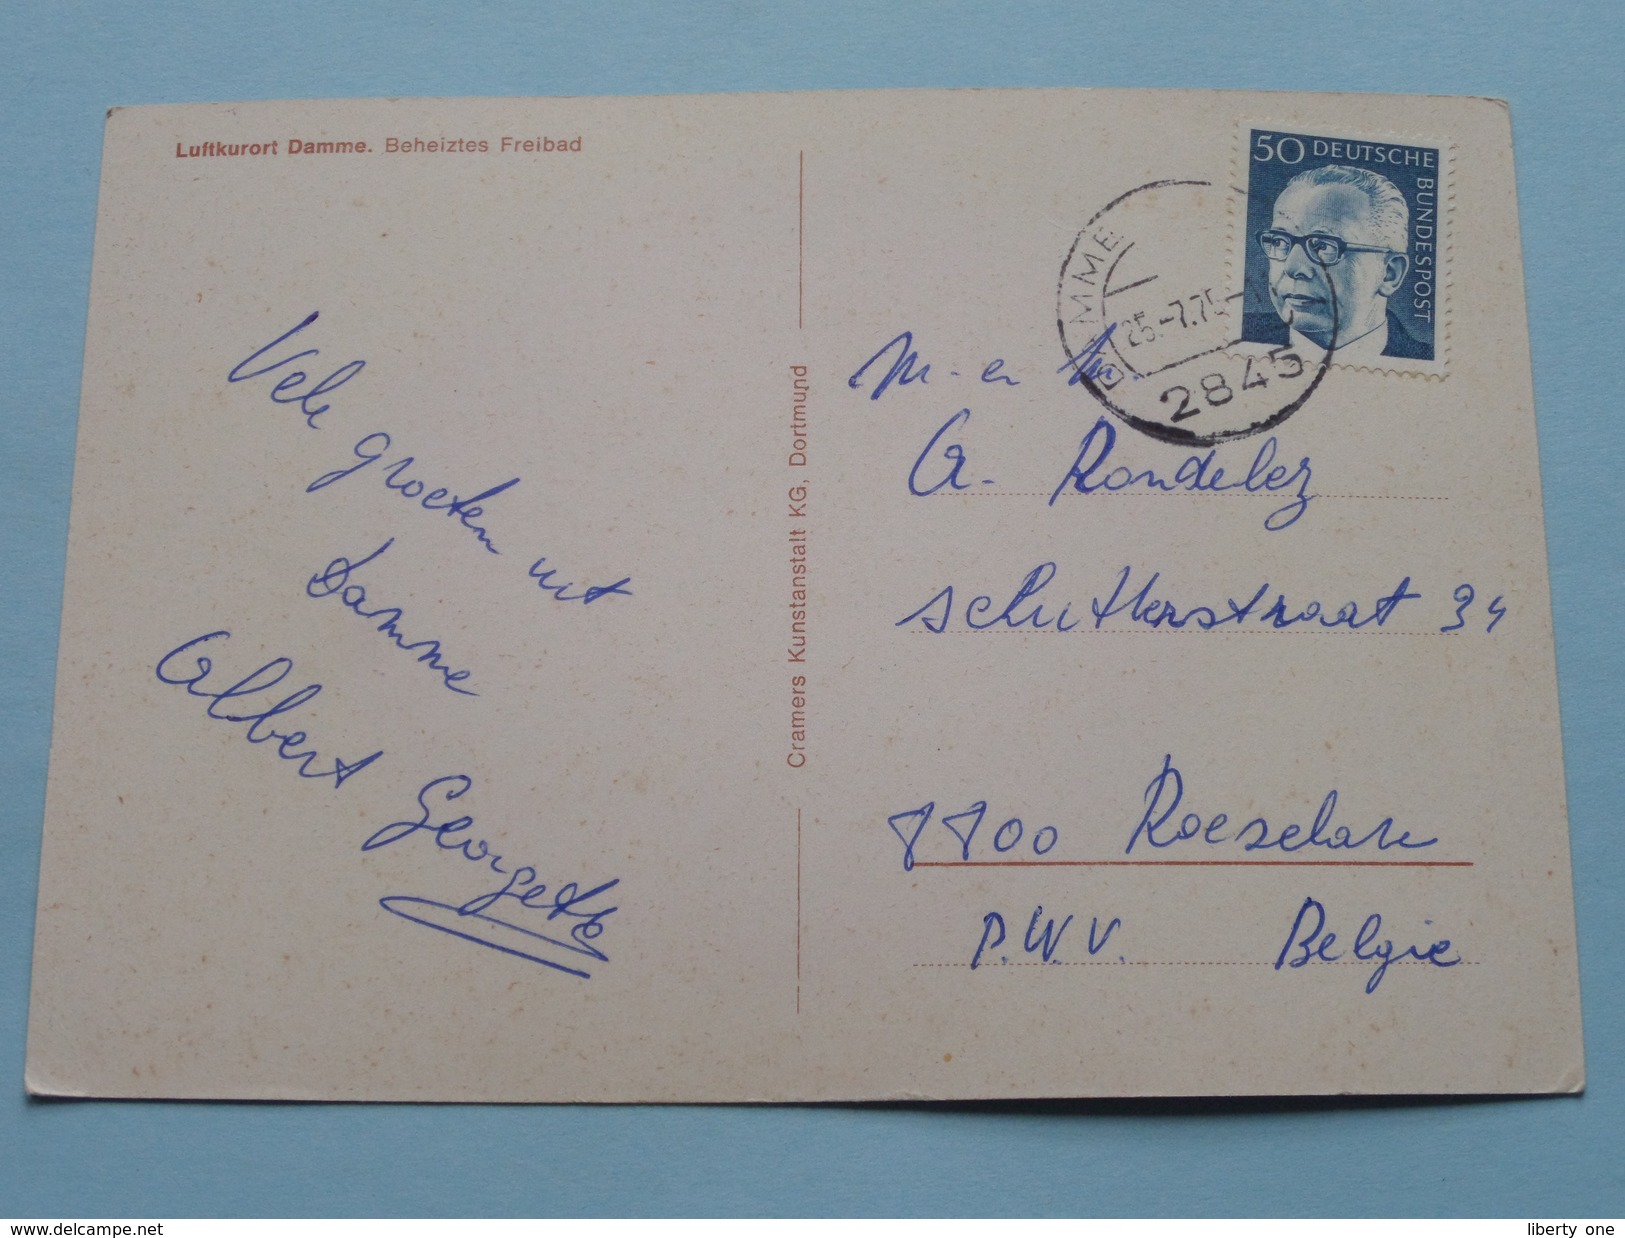 Luftkurort Damme. Beheiztes Freibad
50 DEUTSCHE BUNDESPOST
DAMME
25.-7.75
2845
Vele groeten uit
Damme
Albert Georgette
Cramers Kunstanstalt KG, Dortmund
M. en M.
A. Rondelez
Schuttersstraat 34
8800 Roeselare
P.W.V. Belgie
www.delcampe.net
liberty one